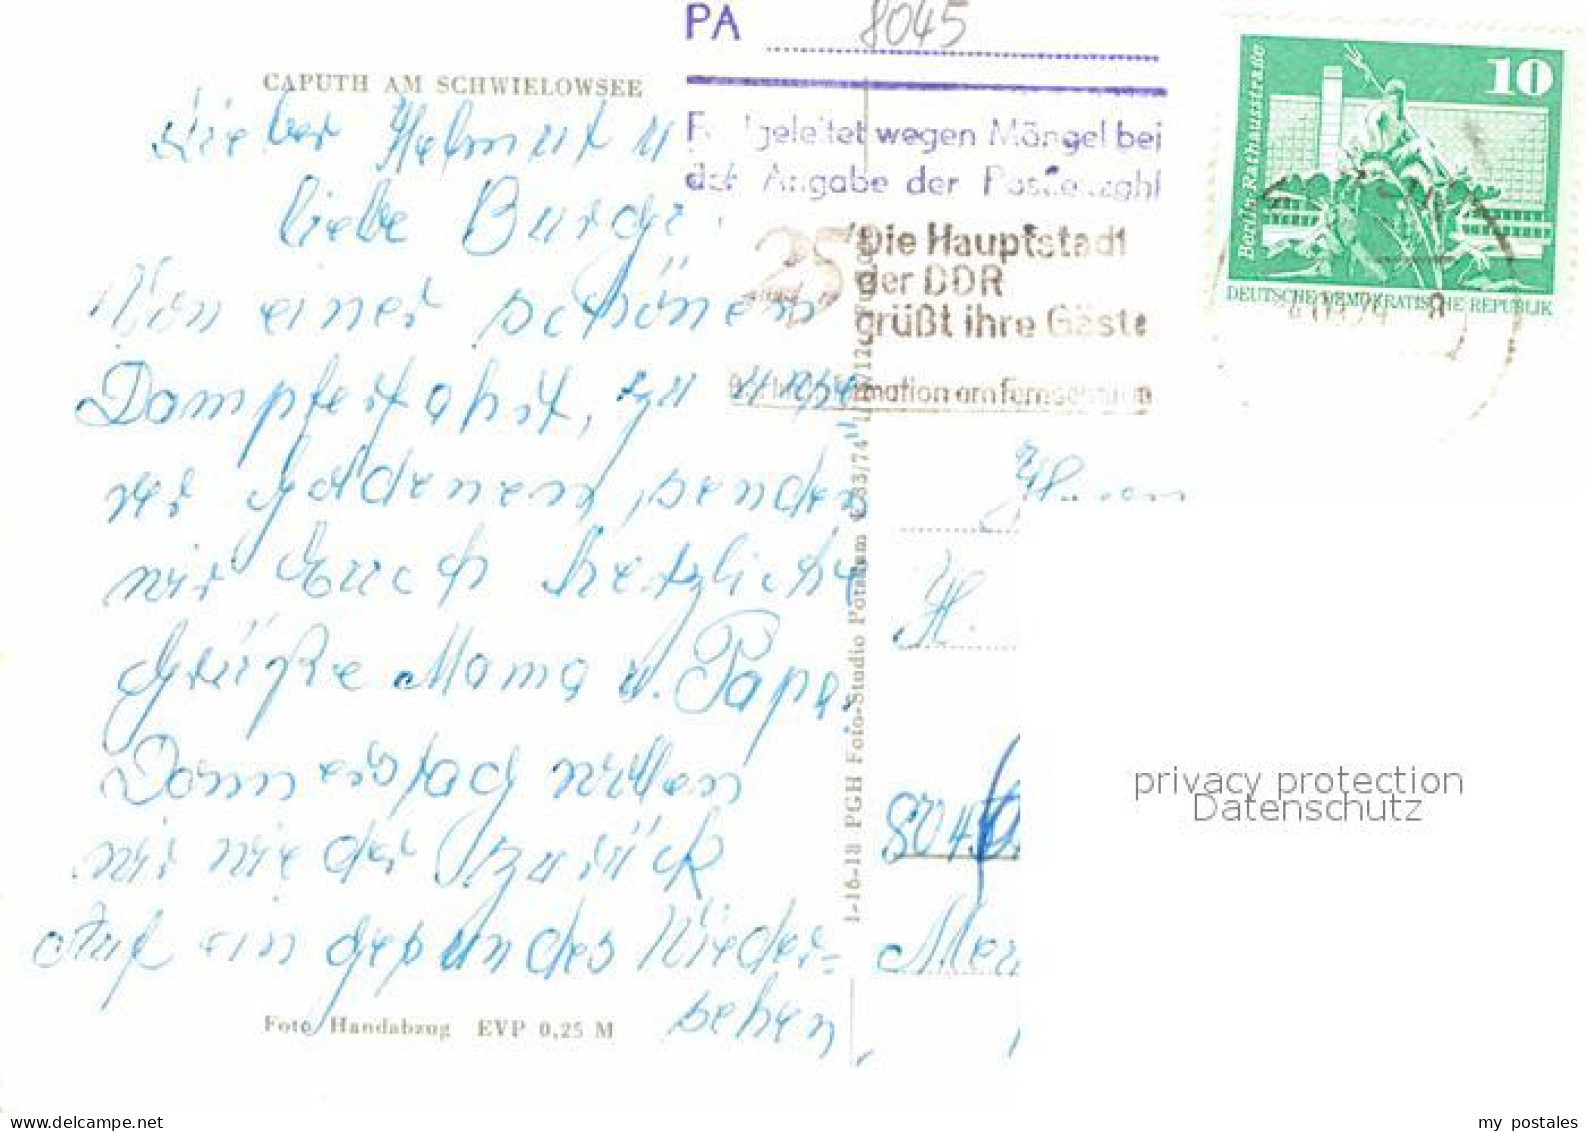 PA 8045
CAPUTH AM SCHWIELOWSEE
geleitet wegen Mängel bei
der Angabe der Postleitzahl
25
Die Hauptstadt
der DDR
grüßt ihre Gäste
mation am Fernsehturm
10
Berlin, Rathausstraße
DEUTSCHE DEMOKRATISCHE REPUBLIK
Lieber Helmut u
liebe Burge.
Von einer schönen
Dampferfahrt, zu unse
rer Goldenen, senden
wir Euch herzliche
Grüße Mama u. Papa.
Donnerstag wollen
wir wieder zurück
Auf ein gesundes Wieder=
sehen,
H.
8045
Foto Handabzug EVP 0,25 M
1-16-18 PGH Foto-Studio Potsdam
privacy protection
Datenschutz
www.delcampe.net
my_postales